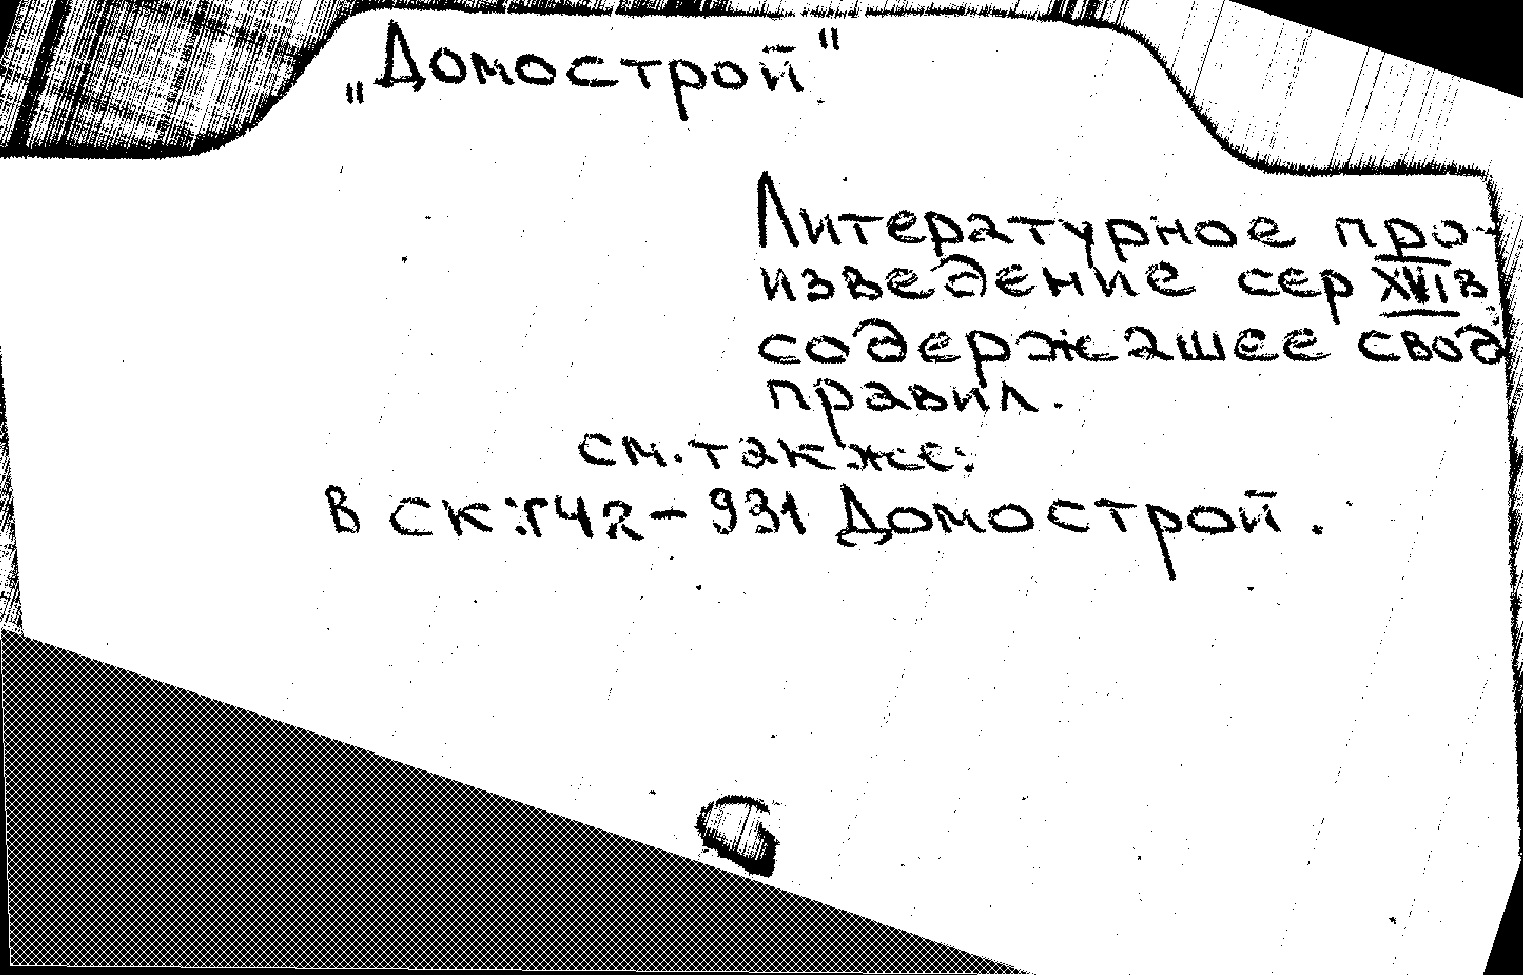 „Домострой"
Литературное про-
изведение сер XVI в
содержащее свод
правил.
см. также:
В СК: Г42-931 Домострой.